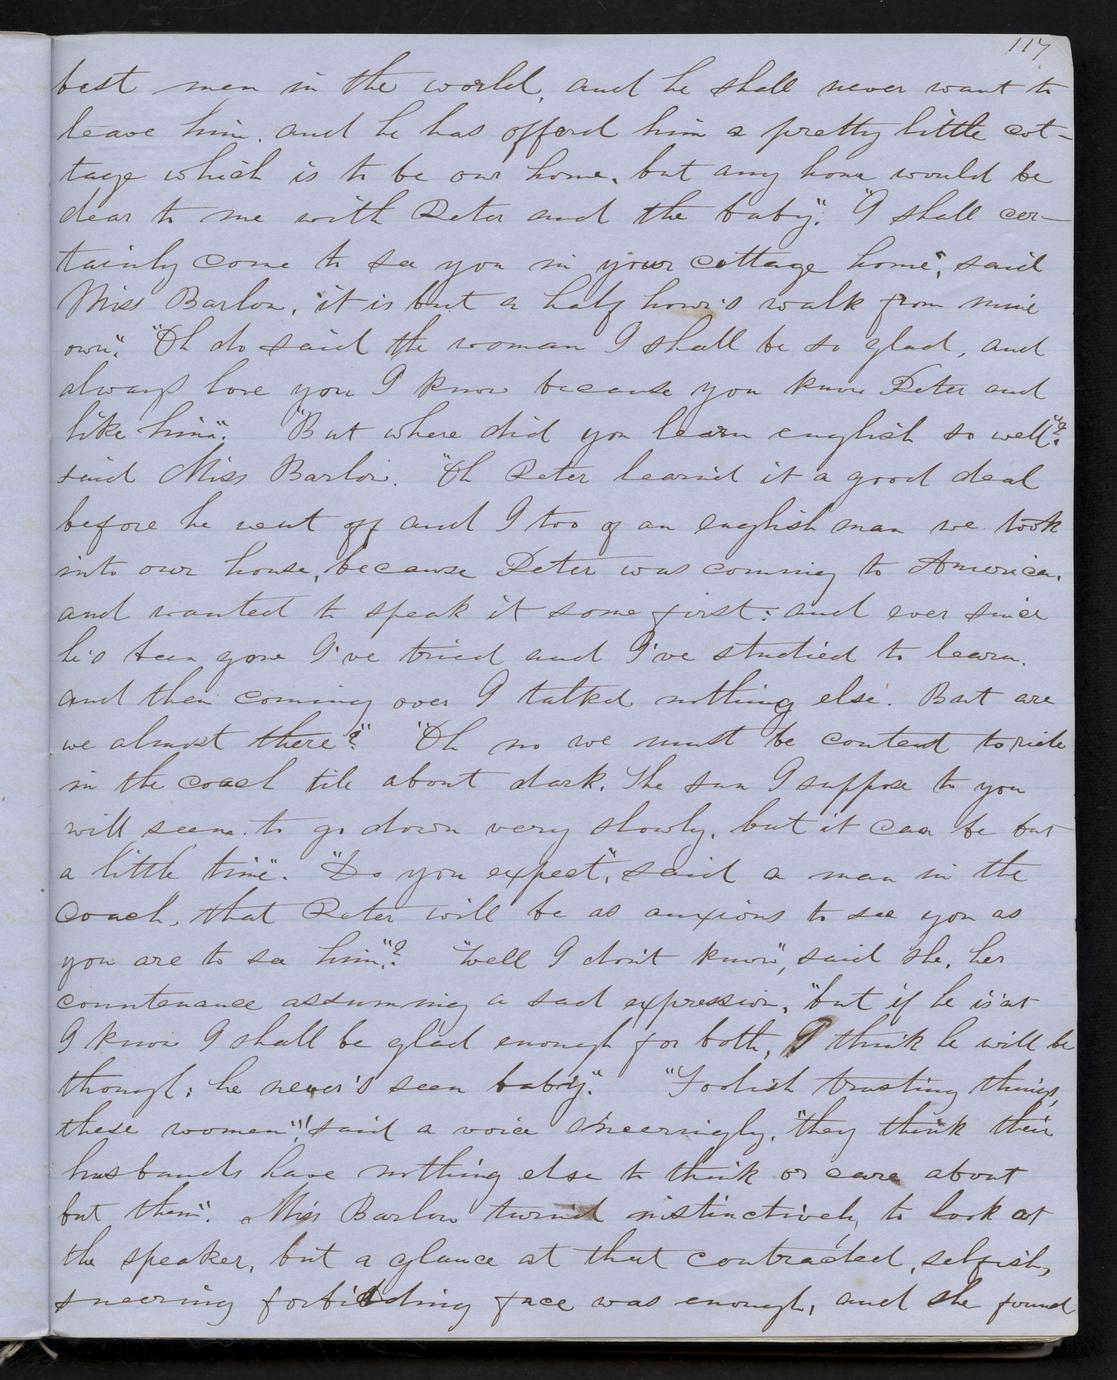 117
best men in the world, and he shall never want to
leave him. and he has offerd him a pretty little cot-
tage which is to be our home, but any home would be
dear to me with Peter and the baby". "I shall cer-
tainly come to see you in your cottage home", said
Miss Barlow, "it is but a half hour's walk from mine
own". "Oh do said the woman I shall be so glad, and
always love you I know because you know Peter and
like him". "But where did you learn english so well"?
said Miss Barlow. "Oh Peter learn'd it a good deal
before he went off and I too of an english man we took
into our house, because Peter was comming to America,
and wanted to speak it some first: and ever since
he's been gone I've tried and I've studied to learn.
and then coming over I talked nothing else. But are
we almost there"? "Oh no we must be content to ride
in the coach till about dark. The sun I suppose to you
will seem to go down very slowly, but it can be but
a little time". "Do you expect", said a man in the
coach, that Peter will be as anxious to see you as
you are to see him"? "Well I don't know", said she, her
countenance assumming a sad expression, "but if he is'nt
I know I shall be glad enough for both, I think he will be
though: he never's seen baby". "Foolish trusting things,
these women"! said a voice sneeringly, "they think their
husbands have nothing else to think or care about
but them". Miss Barlow turn'd instinctively to look at
the speaker, but a glance at that contracted, selfish,
sneering forbidding face was enough, and she found